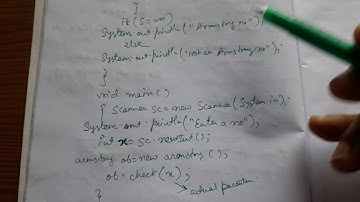 }
if (S==n)
System.out.println("Armstrong no");
else
System.out.println("not an Armstrong no");
}
void main()
{ Scanner sc=new Scanner(System.in);
System.out.println("Enter a no");
int x= sc.nextInt();
armstrong ob=new armstrong();
ob.check(x);
actual parameter
}